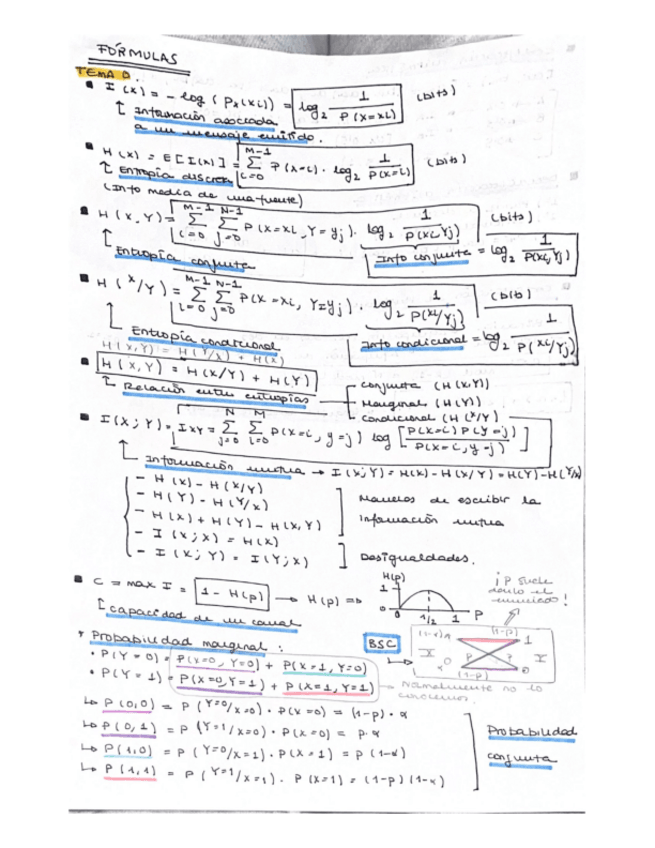 FÓRMULAS
TEMA 0.
I(x) = - log ( Px(xi)) = log₂ 1/P(X=xi) (bits)
Información asociada
a un mensaje emitido.
H(x) = E[I(x)] = Σ_{i=0}^{M-1} P(x=i) · log₂ 1/P(x=i) (bits)
Entropía discreta
(Info media de una fuente)
H(X,Y) = Σ_{i=0}^{M-1} Σ_{j=0}^{N-1} P(X=xi, Y=yj) · log₂ 1/P(xi,yj) (bits)
Entropía conjunta
Info conjunta = log₂ 1/P(xi,yj)
H(X/Y) = Σ_{i=0}^{M-1} Σ_{j=0}^{N-1} P(X=xi, Y=yj) · log₂ 1/P(xi/yj) (bits)
Entropía condicional
Info condicional = log₂ 1/P(xi/yj)
H(X,Y) = H(Y/X) + H(X)
H(X,Y) = H(X/Y) + H(Y)
Relación entre entropías
conjunta (H(X,Y))
Marginal (H(Y))
condicional (H(X/Y)
I(X;Y) = Ixy = Σ_{j=0}^{N} Σ_{i=0}^{M} P(x=i, y=j) log [P(x=i) P(y=j) / P(x=i, y=j)]
Información mutua → I(X;Y) = H(X) - H(X/Y) = H(Y) - H(Y/X)
- H(X) - H(X/Y)
- H(Y) - H(Y/X)
- H(X) + H(Y) - H(X,Y)
Maneras de escribir la
información mutua
- I(X;X) = H(X)
- I(X;Y) = I(Y;X)
Desigualdades.
C = max I = 1 - H(p) → H(p) ⇒
capacidad de un canal
H(p)
1
0 1/2 1 P
¡P suele
darlo el
enunciado!
* Probabilidad marginal :
BSC
(1-α) 1 (1-p) 1
X P P Y
α 0 (1-p) 0
• P(Y=0) = P(X=0, Y=0) + P(X=1, Y=0)
• P(Y=1) = P(X=0, Y=1) + P(X=1, Y=1)
Normalmente no lo
conocemos.
↳ P(0,0) = P(Y=0/X=0) · P(X=0) = (1-p) · α
↳ P(0,1) = P(Y=1/X=0) · P(X=0) = p · α
↳ P(1,0) = P(Y=0/X=1) · P(X=1) = P(1-α)
↳ P(1,1) = P(Y=1/X=1) · P(X=1) = (1-p)(1-α)
Probabilidad
conjunta